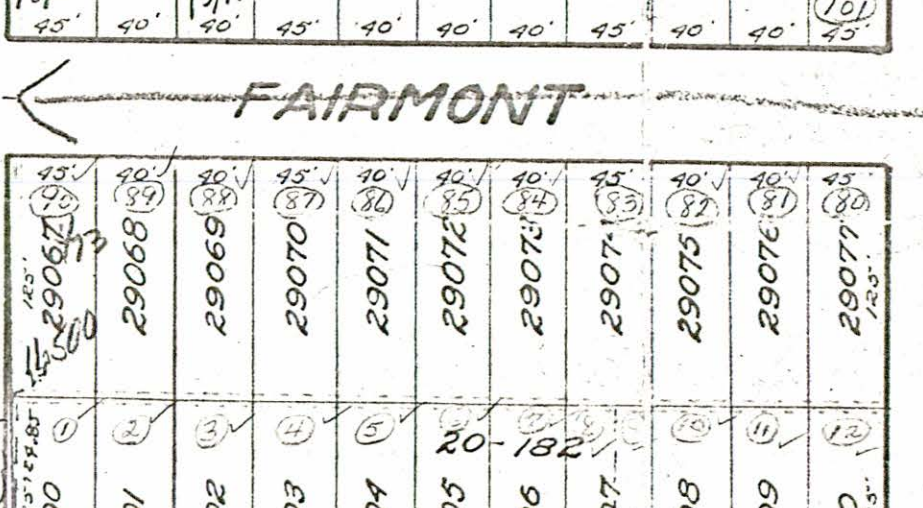 45' 40' 40' 45' 40' 40' 40' 45' 40' 40' 45'
101
FAIRMONT
45' 40' 40' 45' 40' 40' 40' 45' 40' 40' 45'
90 89 88 87 86 85 84 83 82 81 80
29067 29068 29069 29070 29071 29072 29073 2907 29075 29076 29077
125' 125'
500
1 2 3 4 5 10 11 12
20-182
00 01 02 03 04 05 06 07 08 09 0